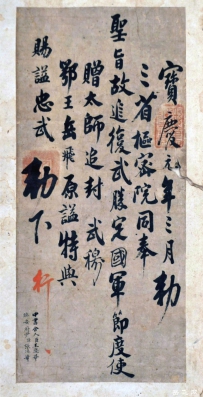 寳慶元年三月勅
三省樞密院同奉
聖旨故追復武勝定國軍節度使
贈太師追封武穆
鄂王岳飛原諡特與
賜諡忠武
勅下
行